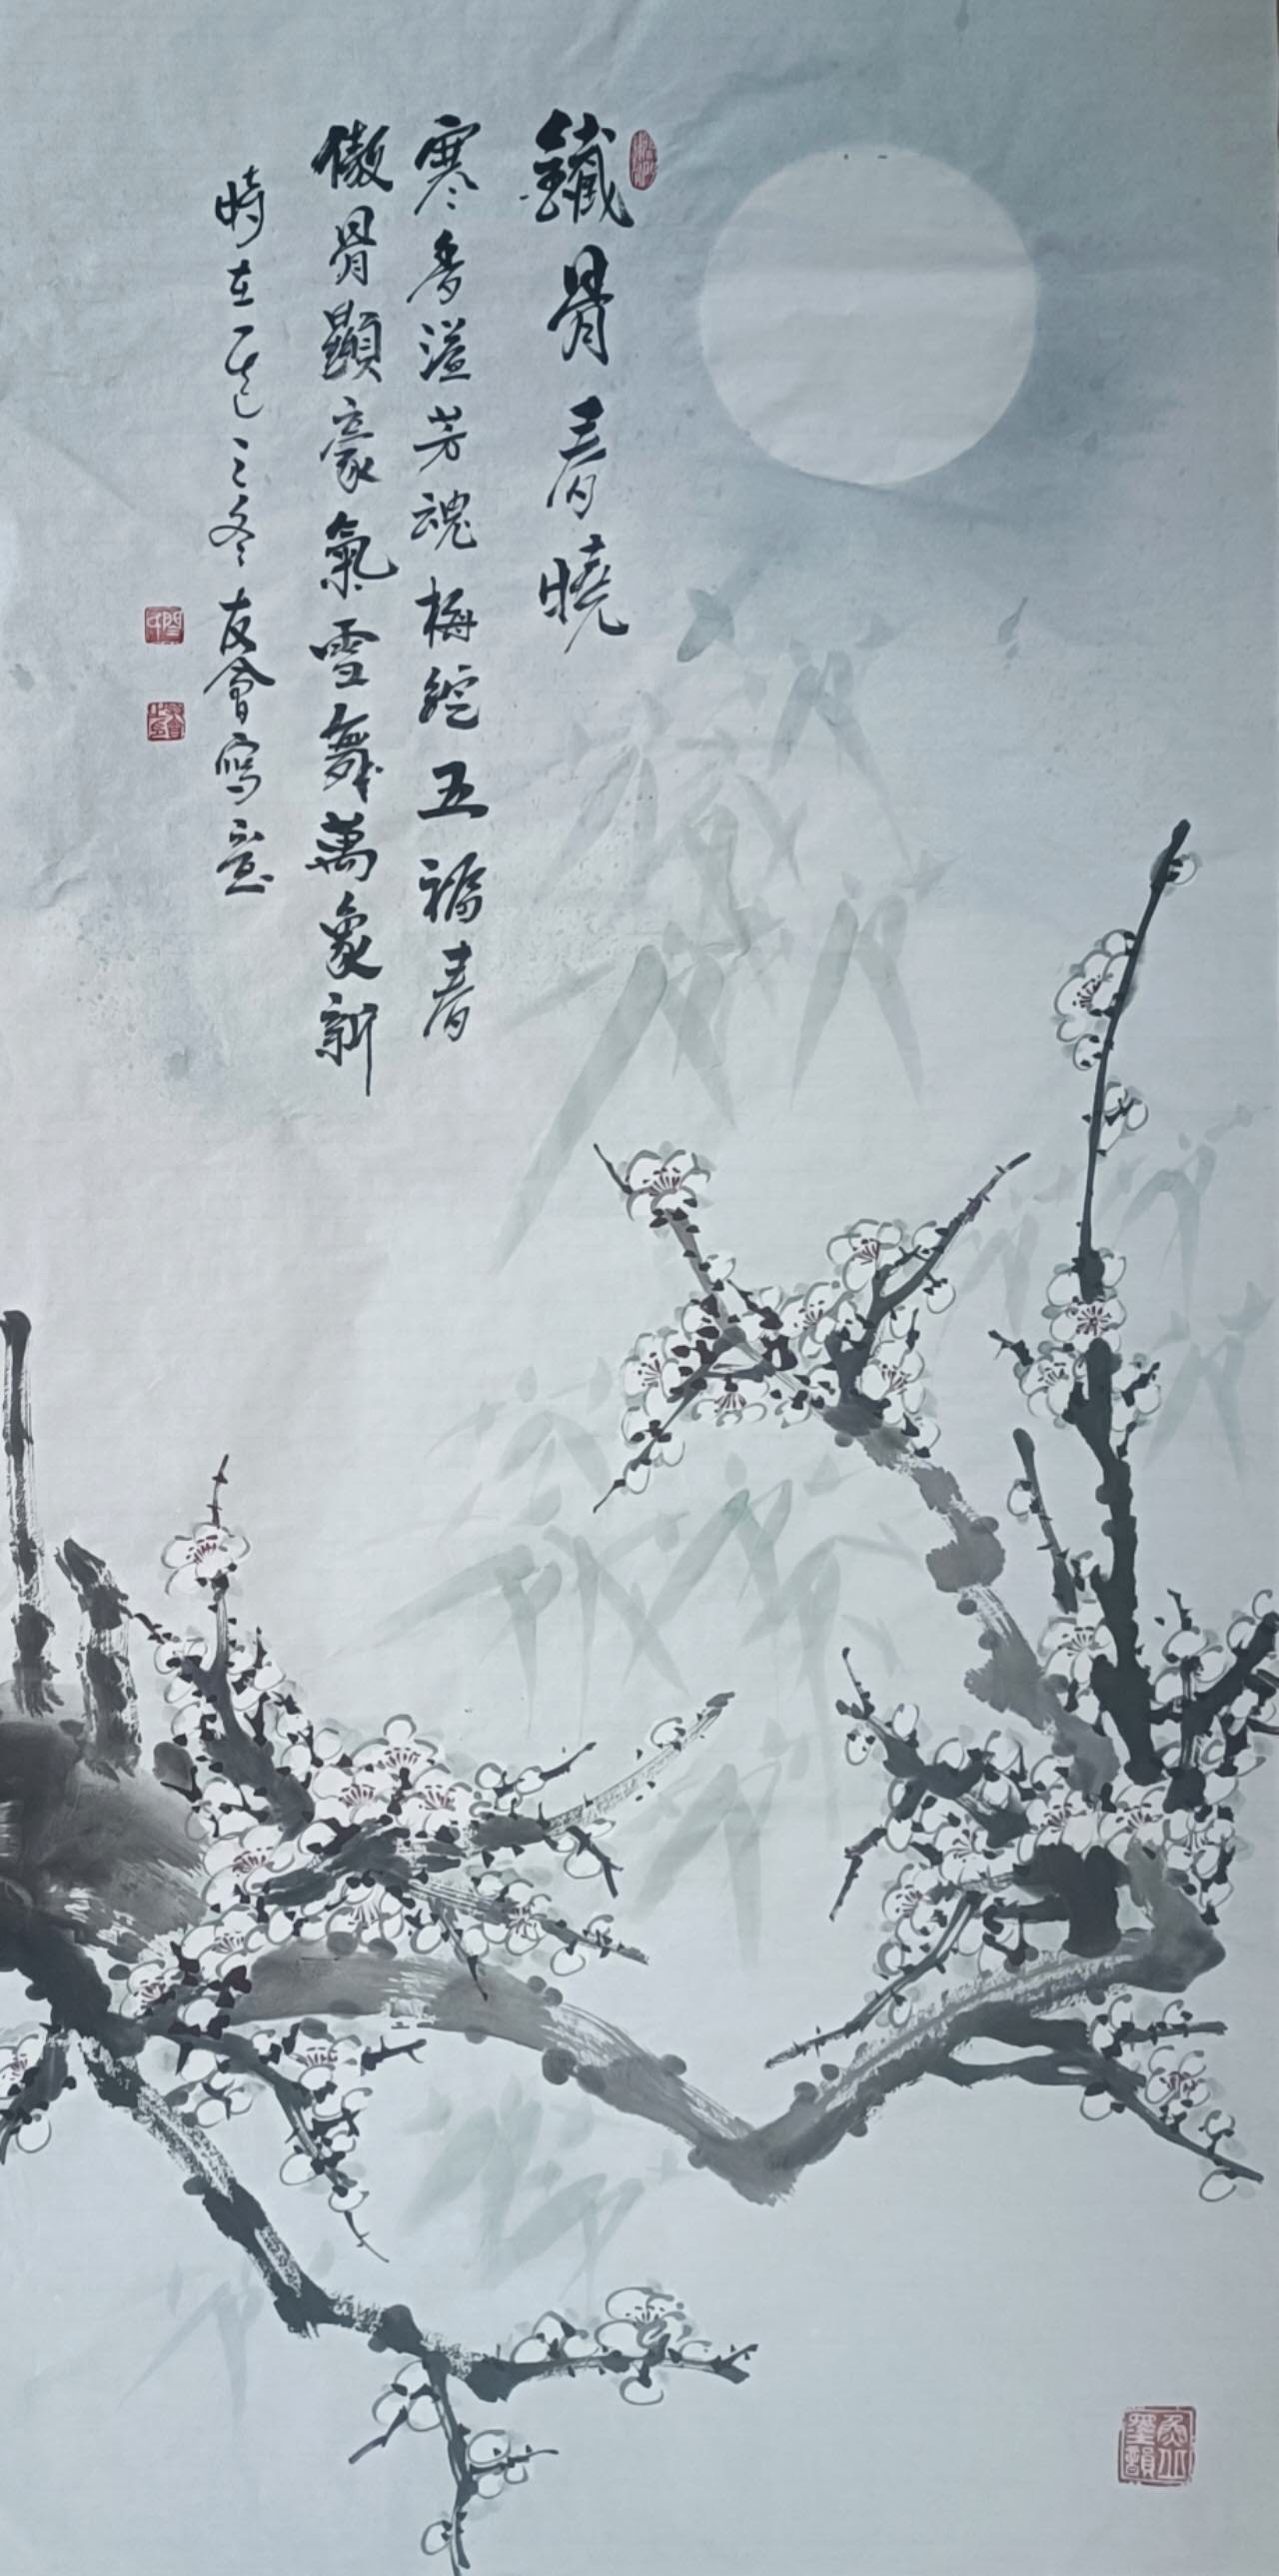 鐵骨春曉
寒香溢芳魂梅綻五福春
傲骨顯豪氣雪舞萬象新
時在乙巳之冬友會寫意